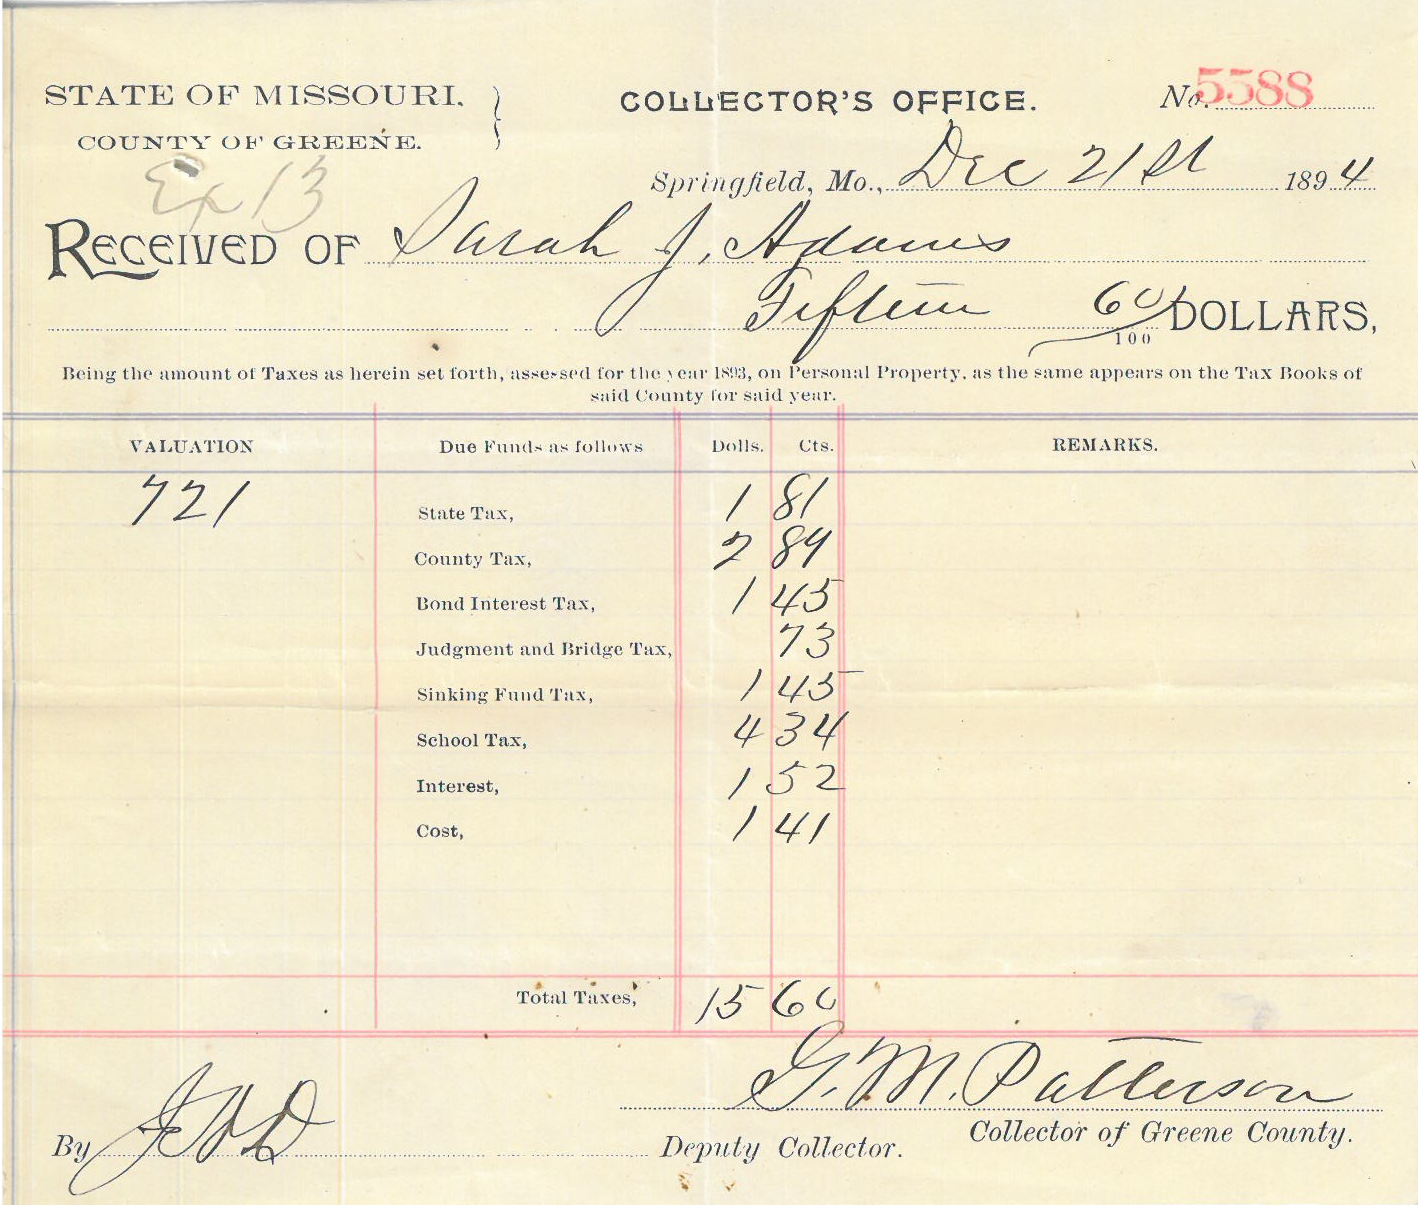 STATE OF MISSOURI.
COUNTY OF GREENE.
COLLECTOR'S OFFICE.
No. 5588
Ex 13
Springfield, Mo., Dec 21st 1894
RECEIVED OF Sarah J. Adams
Fifteen 60/100 DOLLARS,
Being the amount of Taxes as herein set forth, assessed for the year 1893, on Personal Property, as the same appears on the Tax Books of
said County for said year.
VALUATION Due Funds as follows Dolls. Cts. REMARKS.
721 State Tax, 1 81
County Tax, 2 89
Bond Interest Tax, 1 45
Judgment and Bridge Tax, 73
Sinking Fund Tax, 1 45
School Tax, 4 34
Interest, 1 52
Cost, 1 41
Total Taxes, 15 60
G. M. Patterson
Collector of Greene County.
By Deputy Collector.